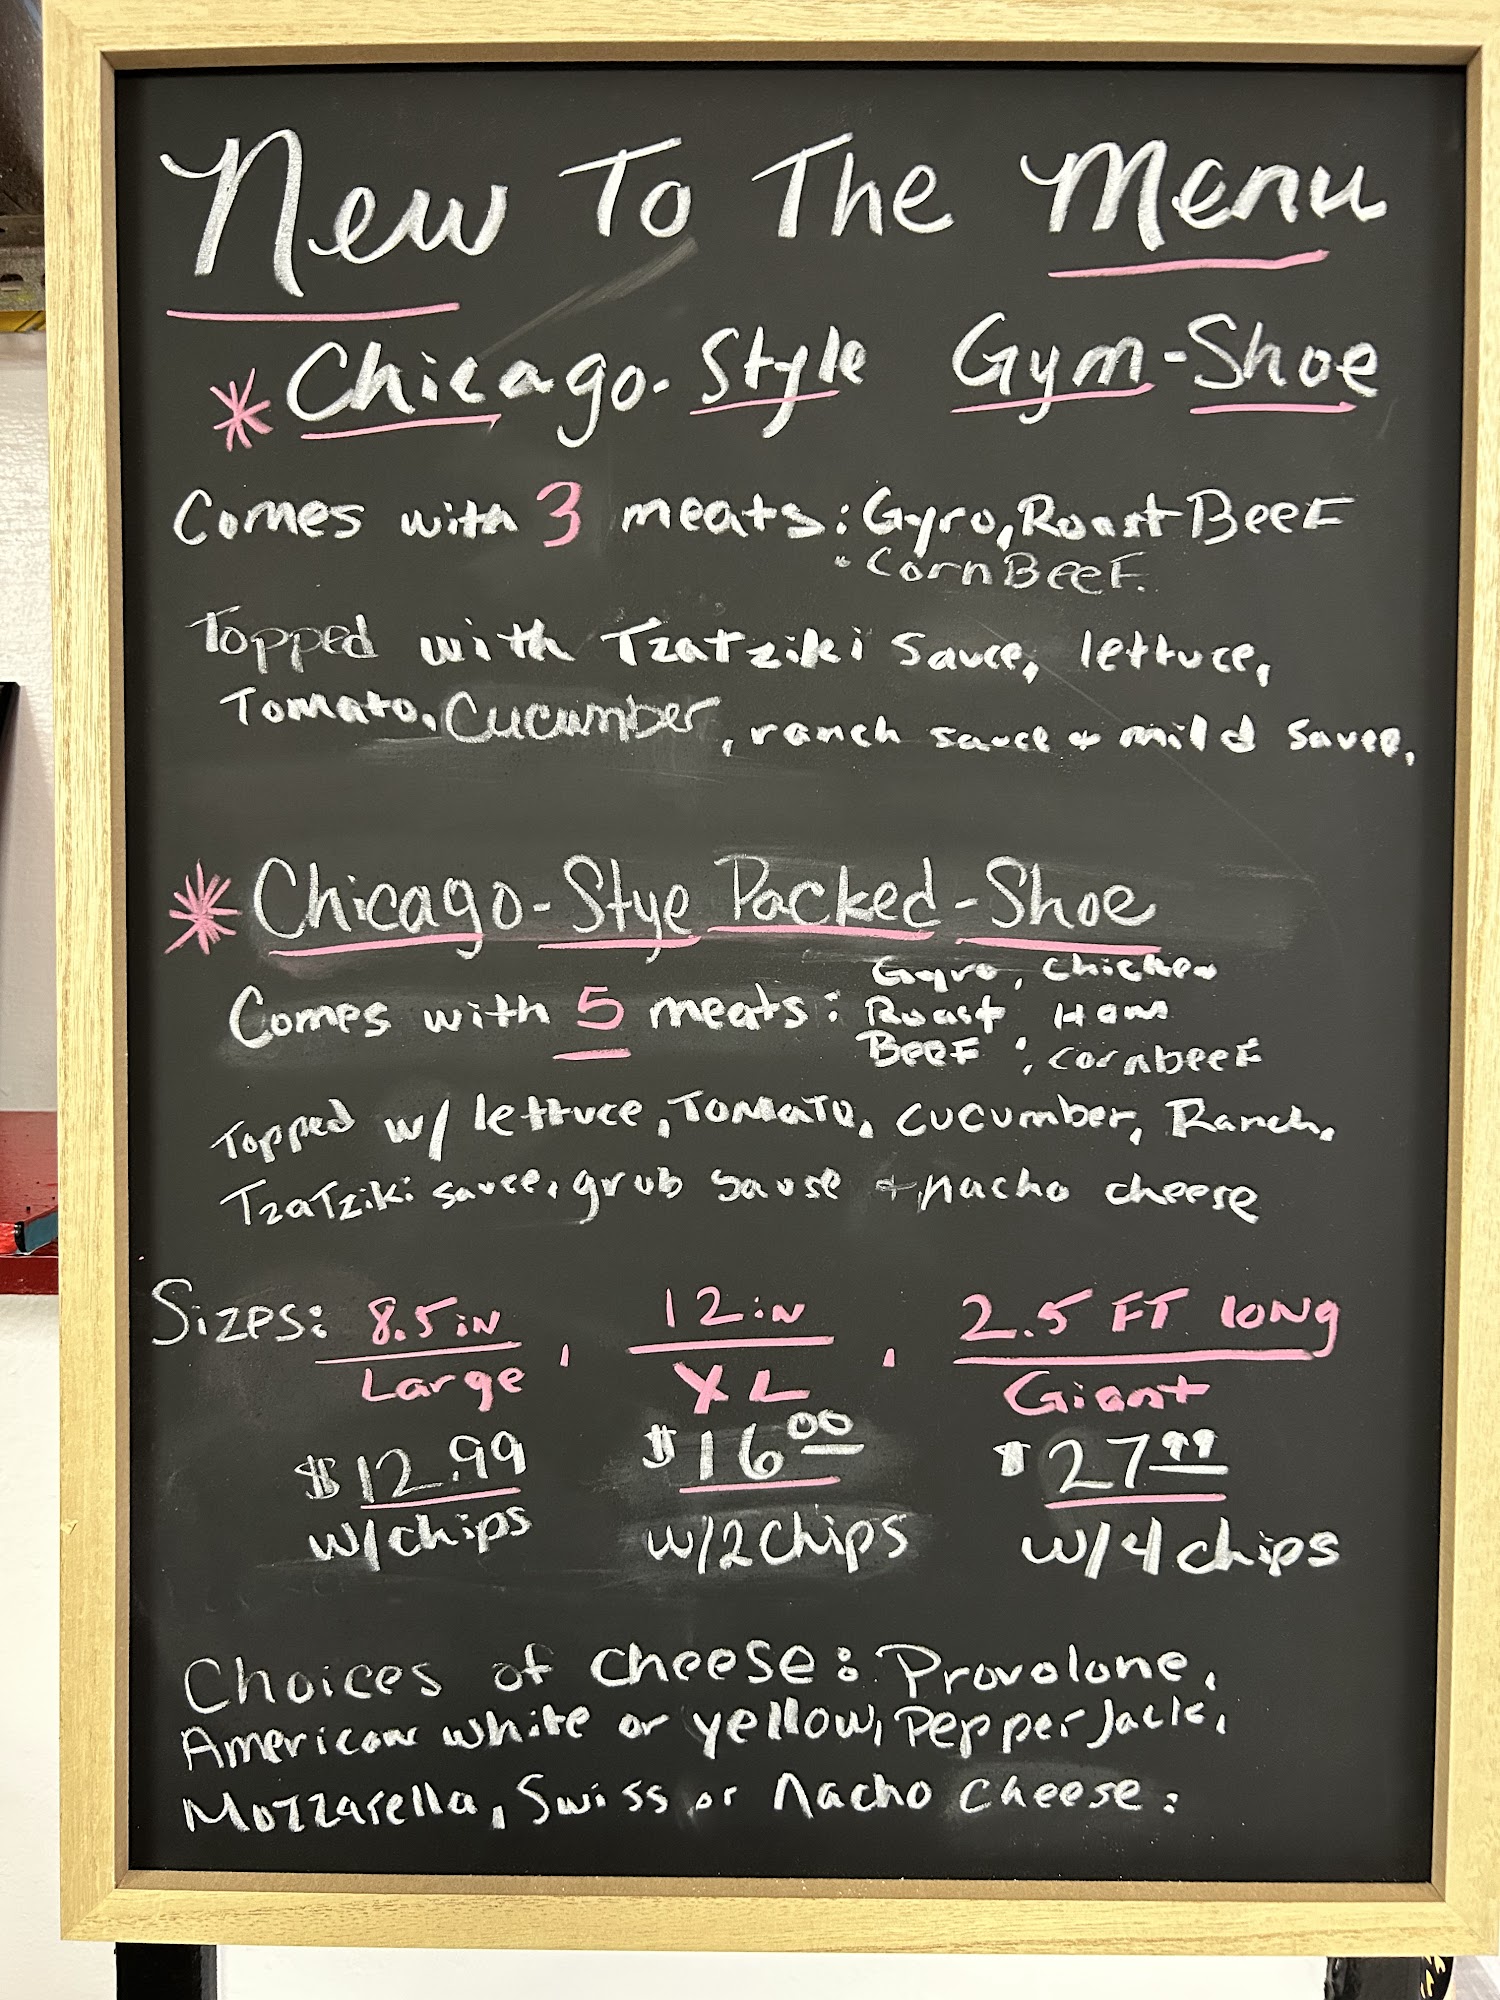 New To The Menu
* Chicago-Style Gym-Shoe
Comes with 3 meats: Gyro, Roast Beef
• Corn Beef.
Topped with Tzatziki sauce, lettuce,
Tomato, Cucumber, ranch sauce + mild sauce.
* Chicago-Stye Packed-Shoe
Comes with 5 meats: Gyro, chicken
Roast Ham
Beef ; cornbeef
Topped w/ lettuce, Tomato, cucumber, Ranch,
Tzatziki sauce, grub sause + nacho cheese
Sizes: 8.5 in, 12 in, 2.5 FT long
Large XL Giant
$12.99 $16.00 $27.99
w/chips w/2 chips w/4 chips
Choices of cheese: Provolone,
American white or yellow, Pepper Jack,
Mozzarella, Swiss or Nacho Cheese: